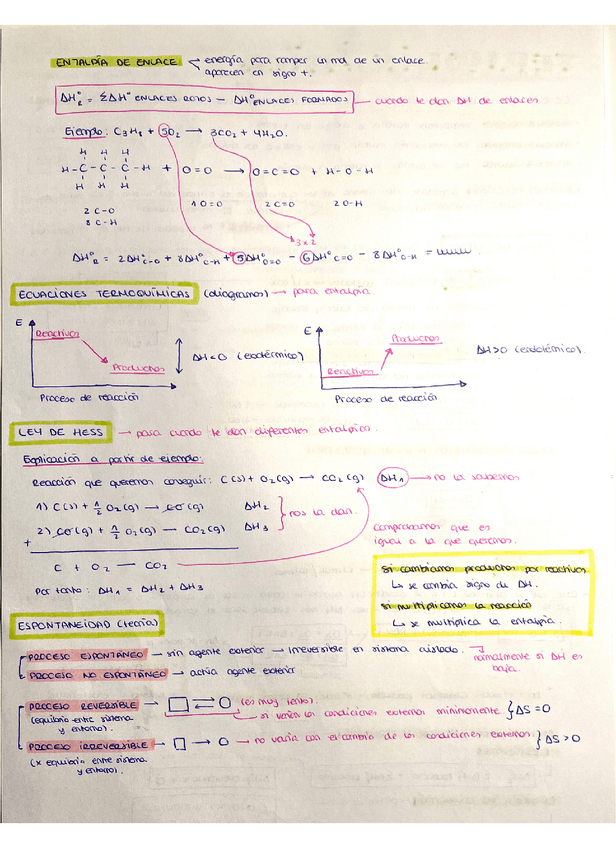 ENTALPÍA DE ENLACE energía para romper un mol de un enlace.
aparecen en signo +.
ΔH°R = ΣΔH° ENLACES ROTOS − ΔH° ENLACES FORMADOS → cuando te dan ΔH de enlaces
Ejemplo: C3H8 + 5O2 → 3CO2 + 4H2O.
H H H
H-C-C-C-H + O=O → O=C=O + H-O-H
H H H
2 C-O 1 O=O 2C=O 2 O-H
8 C-H
3x2
ΔH°R = 2ΔH°C-O + 8ΔH°C-H + 5ΔH°O=O − 6ΔH°C=O − 8ΔH°O-H =
ECUACIONES TERMOQUÍMICAS (diagramas) → para entalpía
E Reactivos Productos ΔH<0 (exotérmico)
Proceso de reacción
E Productos Reactivos ΔH>0 (endotérmico).
Proceso de reacción
LEY DE HESS → para cuando te dan diferentes entalpías.
Explicación a partir de ejemplo:
Reacción que queremos conseguir: C(s) + O2(g) → CO2(g) ΔH1 → no la sabemos
1) C(s) + 1/2 O2(g) → CO(g) ΔH2
2) CO(g) + 1/2 O2(g) — CO2(g) ΔH3 } nos la dan.
+
C + O2 — CO2
comprobamos que es
igual a la que queremos.
Por tanto: ΔH1 = ΔH2 + ΔH3
Si cambiamos productos por reactivos
↳ se cambia signo de ΔH.
Si multiplicamos la reacción
↳ se multiplica la entalpía.
ESPONTANEIDAD (teoría)
PROCESO ESPONTÁNEO → sin agente exterior → Irreversible en sistema aislado. → normalmente si ΔH es
baja.
PROCESO NO ESPONTÁNEO → actúa agente exterior
PROCESO REVERSIBLE → □ ⇄ O (es muy lento).
(equilibrio entre sistema
y entorno).
si varían las condiciones externas mínimamente } ΔS=0
PROCESO IRREVERSIBLE → □ → O → no varía con el cambio de las condiciones externas } ΔS>0
(x equilibrio entre sistema
y entorno).